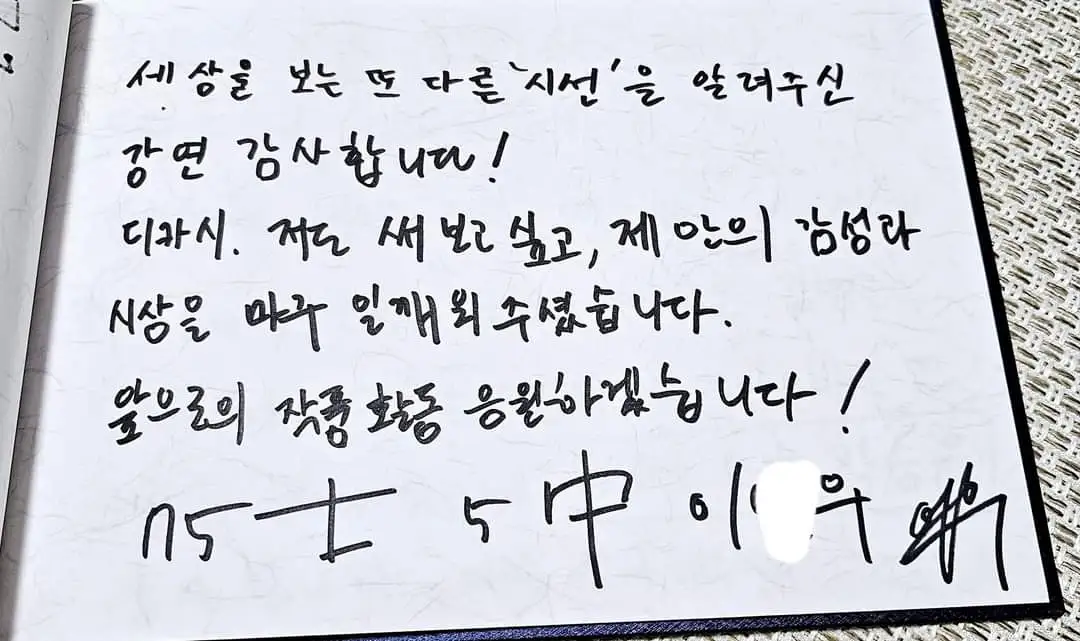 세상을 보는 또 다른 '시선'을 알려주신
강연 감사합니다!
디카시. 저도 써 보고 싶고, 제 안의 감성과
시상을 마구 일깨워 주셨습니다.
앞으로의 작품 활동 응원하겠습니다!
75士 5中 이